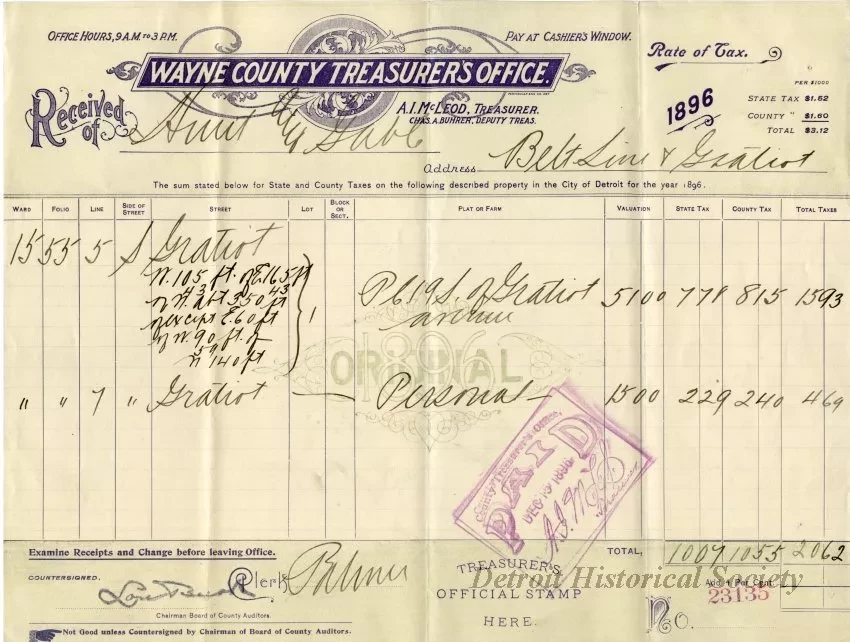 OFFICE HOURS, 9 A.M. TO 3 P.M.
PAY AT CASHIER'S WINDOW.
Rate of Tax.
WAYNE COUNTY TREASURER'S OFFICE.
PER $1000
STATE TAX $1.52
COUNTY " $1.60
TOTAL $3.12
1896
A. I. McLEOD, TREASURER.
CHAS. A. BUHRER, DEPUTY TREAS.
Received of Hunt & Gable
Address Belt Line & Gratiot
The sum stated below for State and County Taxes on the following described property in the City of Detroit for the year 1896.
WARD FOLIO LINE SIDE OF STREET STREET LOT BLOCK OR SECT. PLAT OR FARM VALUATION STATE TAX COUNTY TAX TOTAL TAXES
15 55 5 S Gratiot
W. 105 ft. of E. 165 ft
of N. abt 350 43 ft 43
of except E. 60 ft
of W. 90 ft. of
N 59 140 ft
1 P C 19 S. of Gratiot avenue 5100 778 815 1593
" " 7 " Gratiot — Personal — 1500 229 240 469
ORIGINAL
1896
County Treasurer's Office,
PAID
DEC 15 1896
Examine Receipts and Change before leaving Office.
TOTAL, 1007 1055 2062
COUNTERSIGNED.
Clerk Palmer
Chairman Board of County Auditors.
TREASURER'S
OFFICIAL STAMP
HERE.
Detroit Historical Society
Add 1 Per Cent.
No. 23135
Not Good unless Countersigned by Chairman of Board of County Auditors.